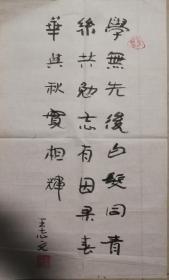 學無先後白髮同青
絲共勉志有因果春
華與秋實相輝
王志文